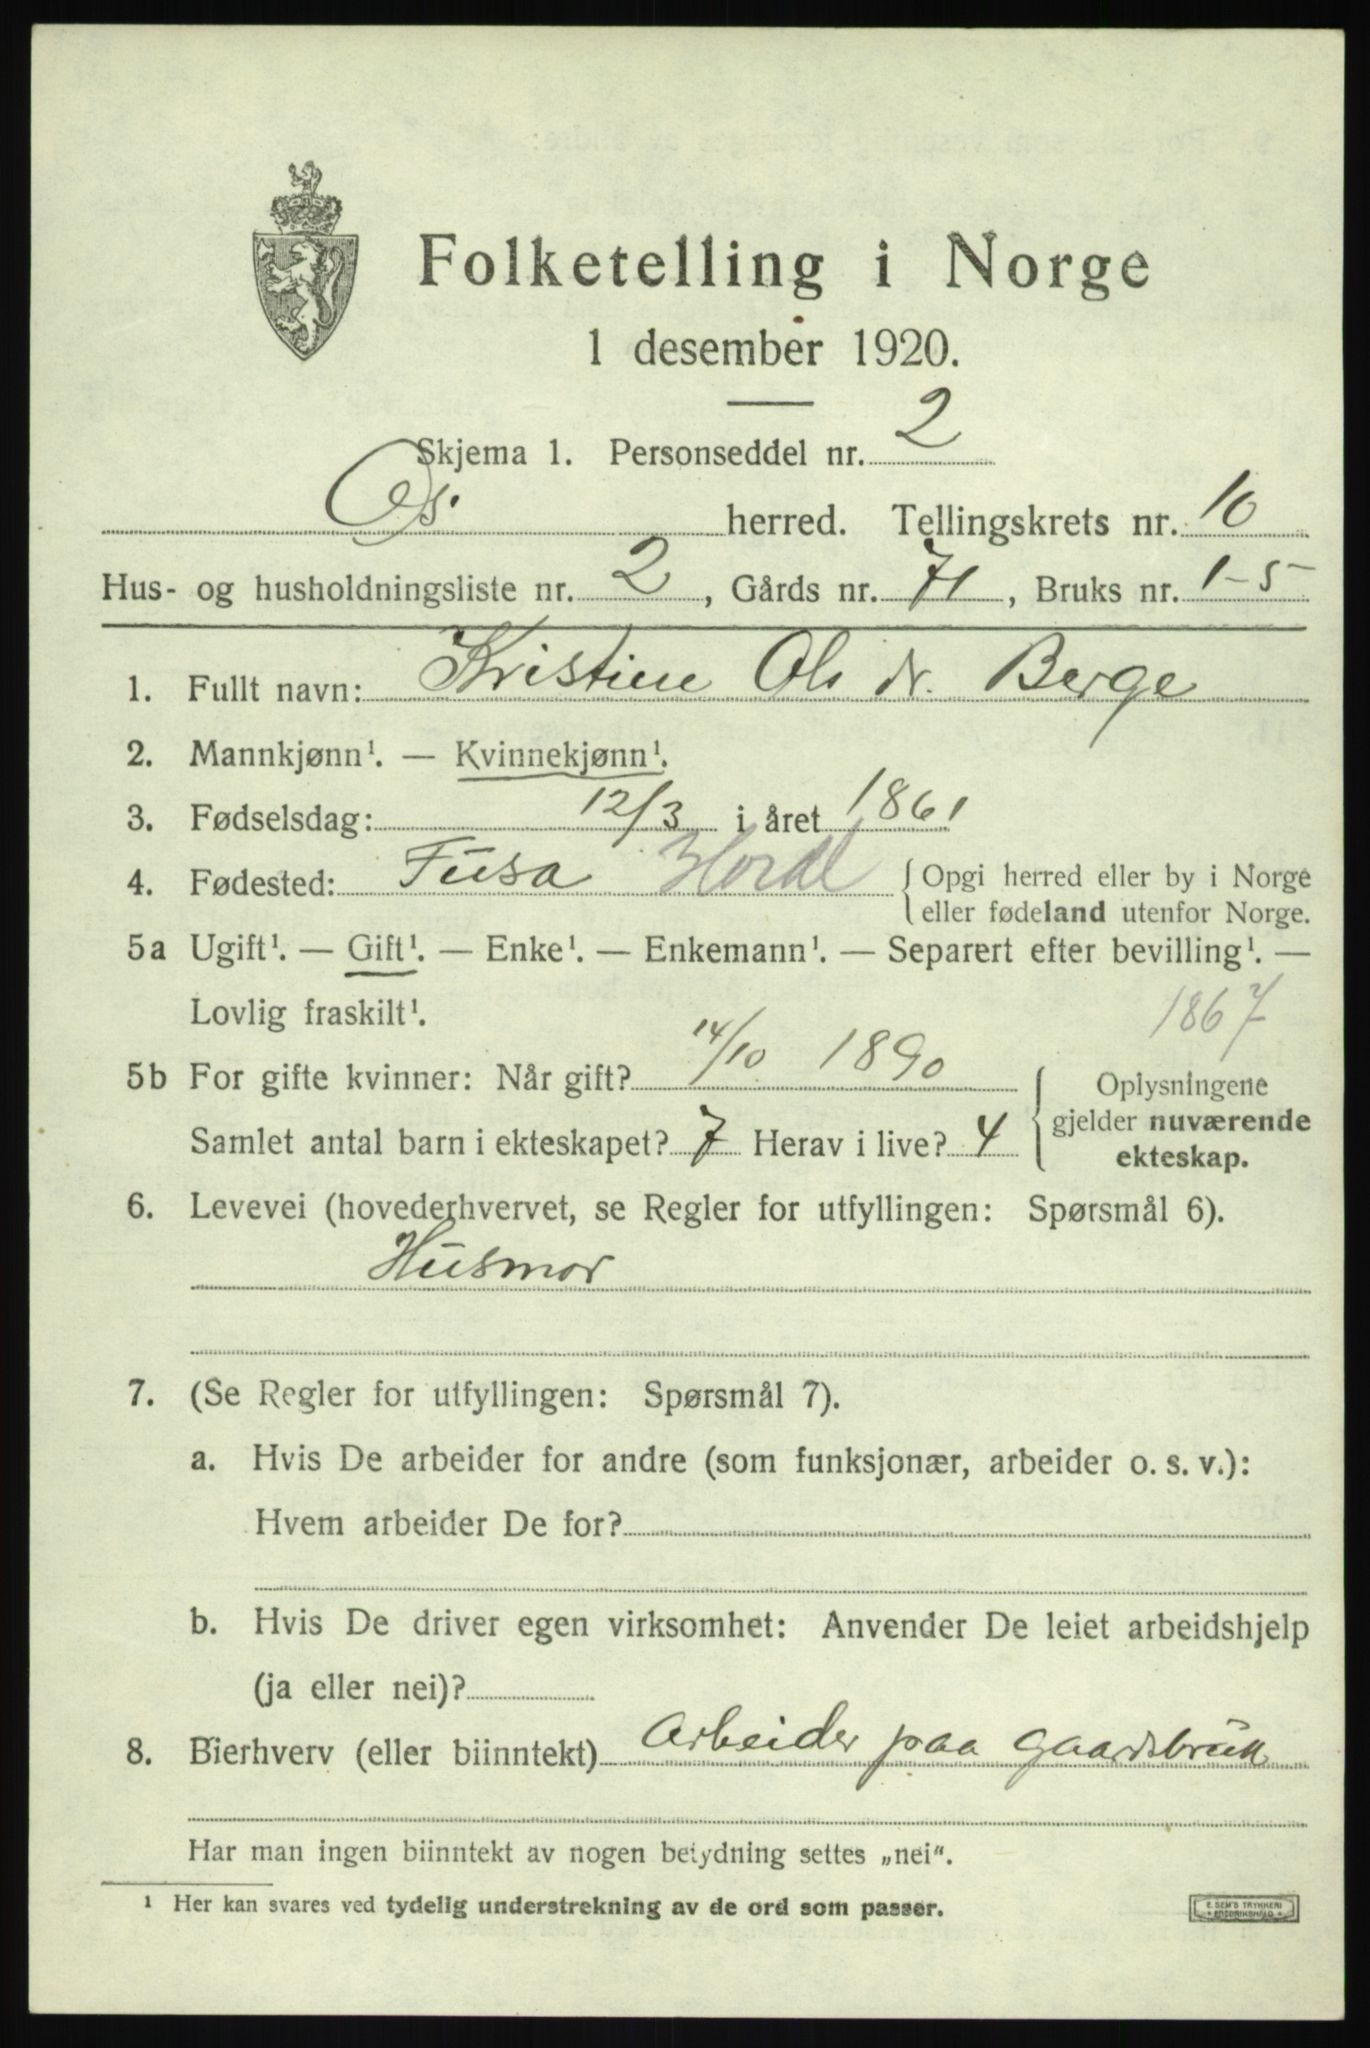 Folketelling i Norge
1 desember 1920.
Skjema 1. Personseddel nr. 2
Os. herred. Tellingskrets nr. 10
Hus- og husholdningsliste nr. 2, Gårds nr. 71, Bruks nr. 1-5
1. Fullt navn: Kristine Ols dr. Berge
2. Mannkjønn¹. — Kvinnekjønn¹.
3. Fødselsdag: 12/3 i året 1861
4. Fødested: Fusa Hordl { Opgi herred eller by i Norge
eller fødeland utenfor Norge.
5a Ugift¹. — Gift¹. — Enke¹. — Enkemann¹. — Separert efter bevilling¹. —
Lovlig fraskilt¹. 1867
5b For gifte kvinner: Når gift? 14/10 1890 { Oplysningene
Samlet antal barn i ekteskapet? 7 Herav i live? 4 gjelder nuværende
ekteskap.
6. Levevei (hovederhvervet, se Regler for utfyllingen: Spørsmål 6).
Husmor
7. (Se Regler for utfyllingen: Spørsmål 7).
a. Hvis De arbeider for andre (som funksjonær, arbeider o. s. v.):
Hvem arbeider De for?
b. Hvis De driver egen virksomhet: Anvender De leiet arbeidshjelp
(ja eller nei)?
8. Bierhverv (eller biinntekt) Arbeider paa gaardsbruk
Har man ingen biinntekt av nogen betydning settes „nei“.
¹ Her kan svares ved tydelig understrekning av de ord som passer.
E. SEM'S TRYKKERI
FREDRIKSHALD